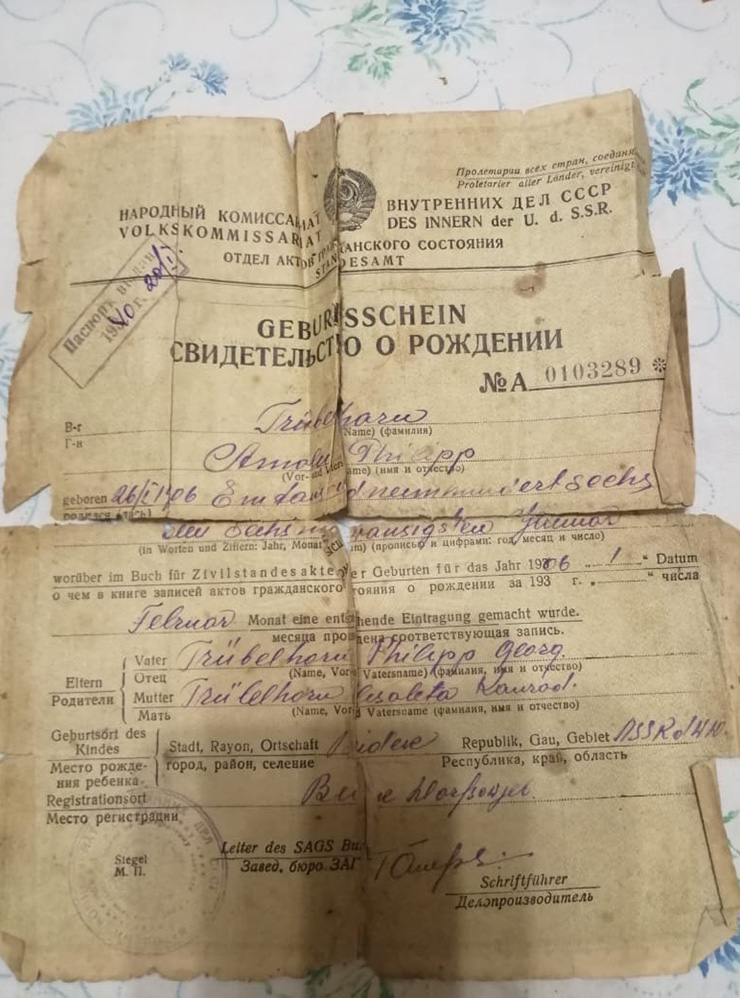 Пролетарии всех стран, соединя
Proletarier aller Länder, vereinigt
НАРОДНЫЙ КОМИССАРИАТ ВНУТРЕННИХ ДЕЛ СССР
VOLKSKOMMISSARIAT DES INNERN der U. d. S.S.R.
ОТДЕЛ АКТОВ ГРАЖДАНСКОГО СОСТОЯНИЯ
STANDESAMT
Паспорт выдан
1940 г. 20/I
GEBURTSSCHEIN
СВИДЕТЕЛЬСТВО О РОЖДЕНИИ
№ А 0103289
В-г Trübelhorn
Г-н (Name) (фамилия)
Arnold Philipp
(Vor- und Vatersname) (имя и отчество)
geboren 26/I 1906 Ein tausend neunhundert sechs
родился (лась)
den Sechsundzwanzigsten Januar
(in Worten und Ziffern: Jahr, Monat (прописью и цифрами: год, месяц и число)
worüber im Buch für Zivilstandesakte der Geburten für das Jahr 1906 1 " Datum
о чем в книге записей актов гражданского состояния о рождении за 193 г. „ " числа
Februar Monat eine entsprechende Eintragung gemacht wurde.
месяца произведена соответствующая запись.
Eltern
Родители
Vater Trübelhorn Philipp Georg.
Отец (Name, Vor- Vatersname) (фамилия, имя и отчество)
Mutter Trübelhorn Konrad.
Мать (Name, Vor- Vatersname) (фамилия, имя и отчество)
Geburtsort des Kindes
Место рождения ребенка
Stadt, Rayon, Ortschaft Republik, Gau, Gebiet ASSRdWD.
город, район, селение Республика, край, область
Registrationsort
Место регистрации
Siegel
М. П.
Leiter des SAGS Bu
Завед. бюро ЗАГ
Schriftführer
Делопроизводитель